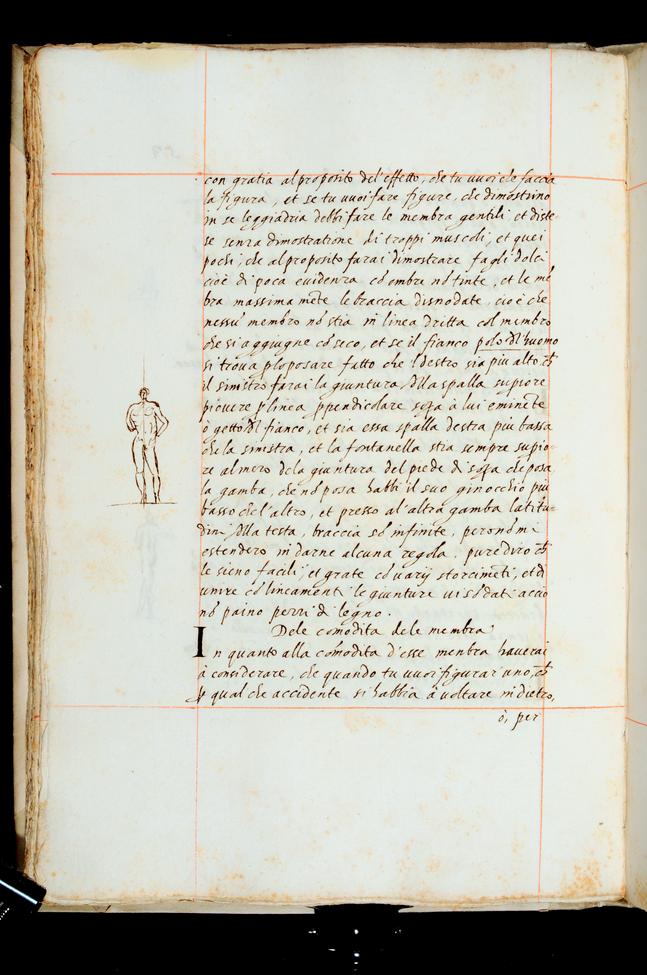 con gratia al proposito del' effetto, che tu vuoi che faccia
la figura, et se tu vuoi fare figure, che dimostrino
in se leggiadria debbi fare le membra gentili, et diste-
se senza dimostratione di troppi muscoli, et quei
pochi, che al proposito farai dimostrare fagli dolci
cioè di poca evidenza cō ombre nō tinte, et le mē
bra massima mēte le braccia disnodate, cioè che
nessū membro nō stia in linea dritta col membro
che si aggiugne cō seco, et se il fianco polo dl' huomo
si trova p lo posare fatto che l destro sia più alto, ch̄
il sinistro farai la giuntura dlla spalla supiore
piovere p linea ppendicolare sopa à lui eminēte
ò getto dl fianco, et sia essa spalla destra più bassa
che la sinistra, et la fontanella stia sempre supio-
re al mezo dela giuntura del piede di sopa che posa
la gamba, che nō posa habbi il suo ginocchio più
basso che l' altro, et presso al' altra gamba l'attitu-
dini dlla testa, braccia sō infinite, però nō mi
estenderò in darne alcuna regola. pure dirò ch̄
le sieno facili, et grate cō varij storcimēti, et di
unire cō lineamenti le giunture ui sō dati acciò
nō paino pezzi di legno.
Dele comodita dele membra.
In quanto alla cōmodita d'esse menbra haverai
à considerare, che quando tu vuoi figurar' uno, ch̄
p qual che accidente si habbia à voltare in dietro,
ò, per